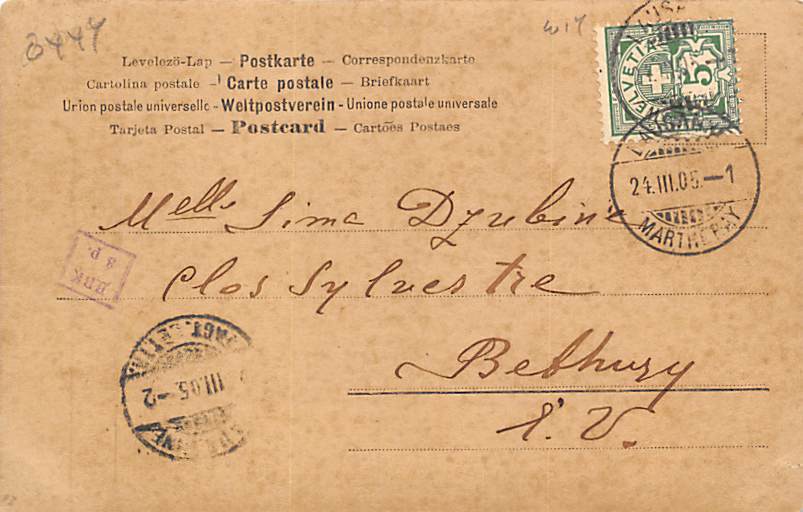 3447
W14
Levelező-Lap — Postkarte — Correspondenzkarte
Cartolina postale — Carte postale — Briefkaart
Union postale universelle - Weltpostverein - Unione postale universale
Tarjeta Postal — Postcard — Cartões Postaes
HELVETIA
5
24.III.05.—1
MARTHERAY
Melle Sima Dzubine
Clos Sylvestre
Bethusy
E. V.
8 P.
III.05.—2